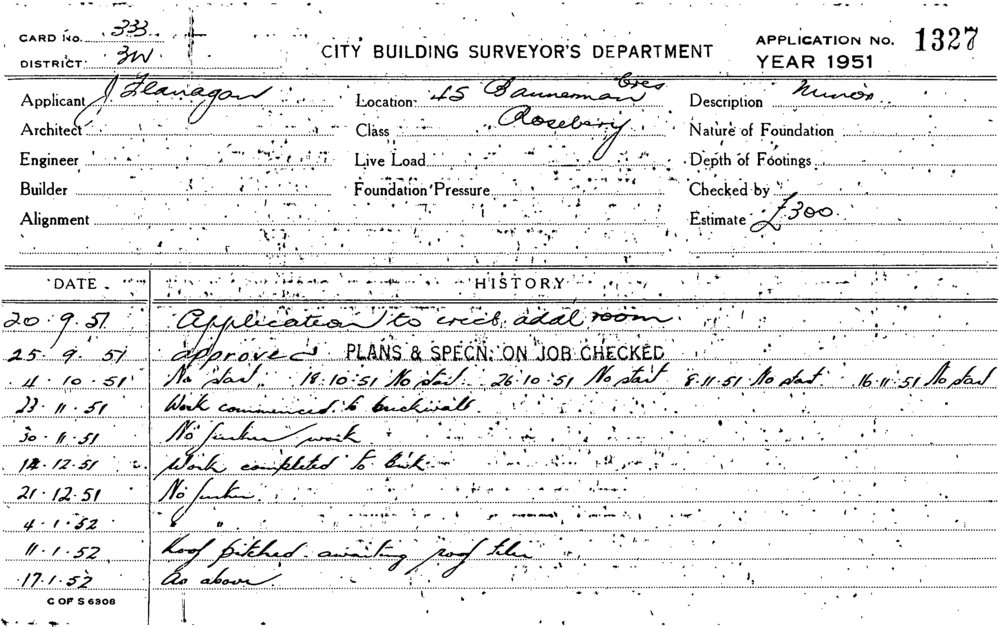 CARD No. 333
DISTRICT: 3W
CITY BUILDING SURVEYOR'S DEPARTMENT
APPLICATION No. 1327
YEAR 1951
Applicant J Flanagan Location 45 Bannerman Cres Description Minor
Architect Class Rosebery Nature of Foundation
Engineer Live Load Depth of Footings
Builder Foundation Pressure Checked by
Alignment Estimate £300.
DATE HISTORY
20.9.51 Application to erect addl room.
25.9.51 approved PLANS & SPECN. ON JOB CHECKED
4.10.51 No start. 18.10.51 No start. 26.10.51 No start 8.11.51 No start 16.11.51 No start
23.11.51 Work commenced to brickwalls.
30.11.51 No further work
14.12.51 Work completed to brick.
21.12.51 No further.
4.1.52 " "
11.1.52 Roof pitched awaiting roof tiles
17.1.52 As above.
C OF S 6306